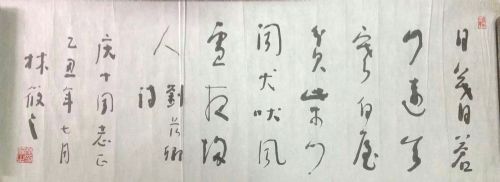 日暮蒼
山遠天
寒白屋
貧柴門
聞犬吠風
雪夜歸
人 劉長卿
詩
志正
乙丑年七月
林筱之